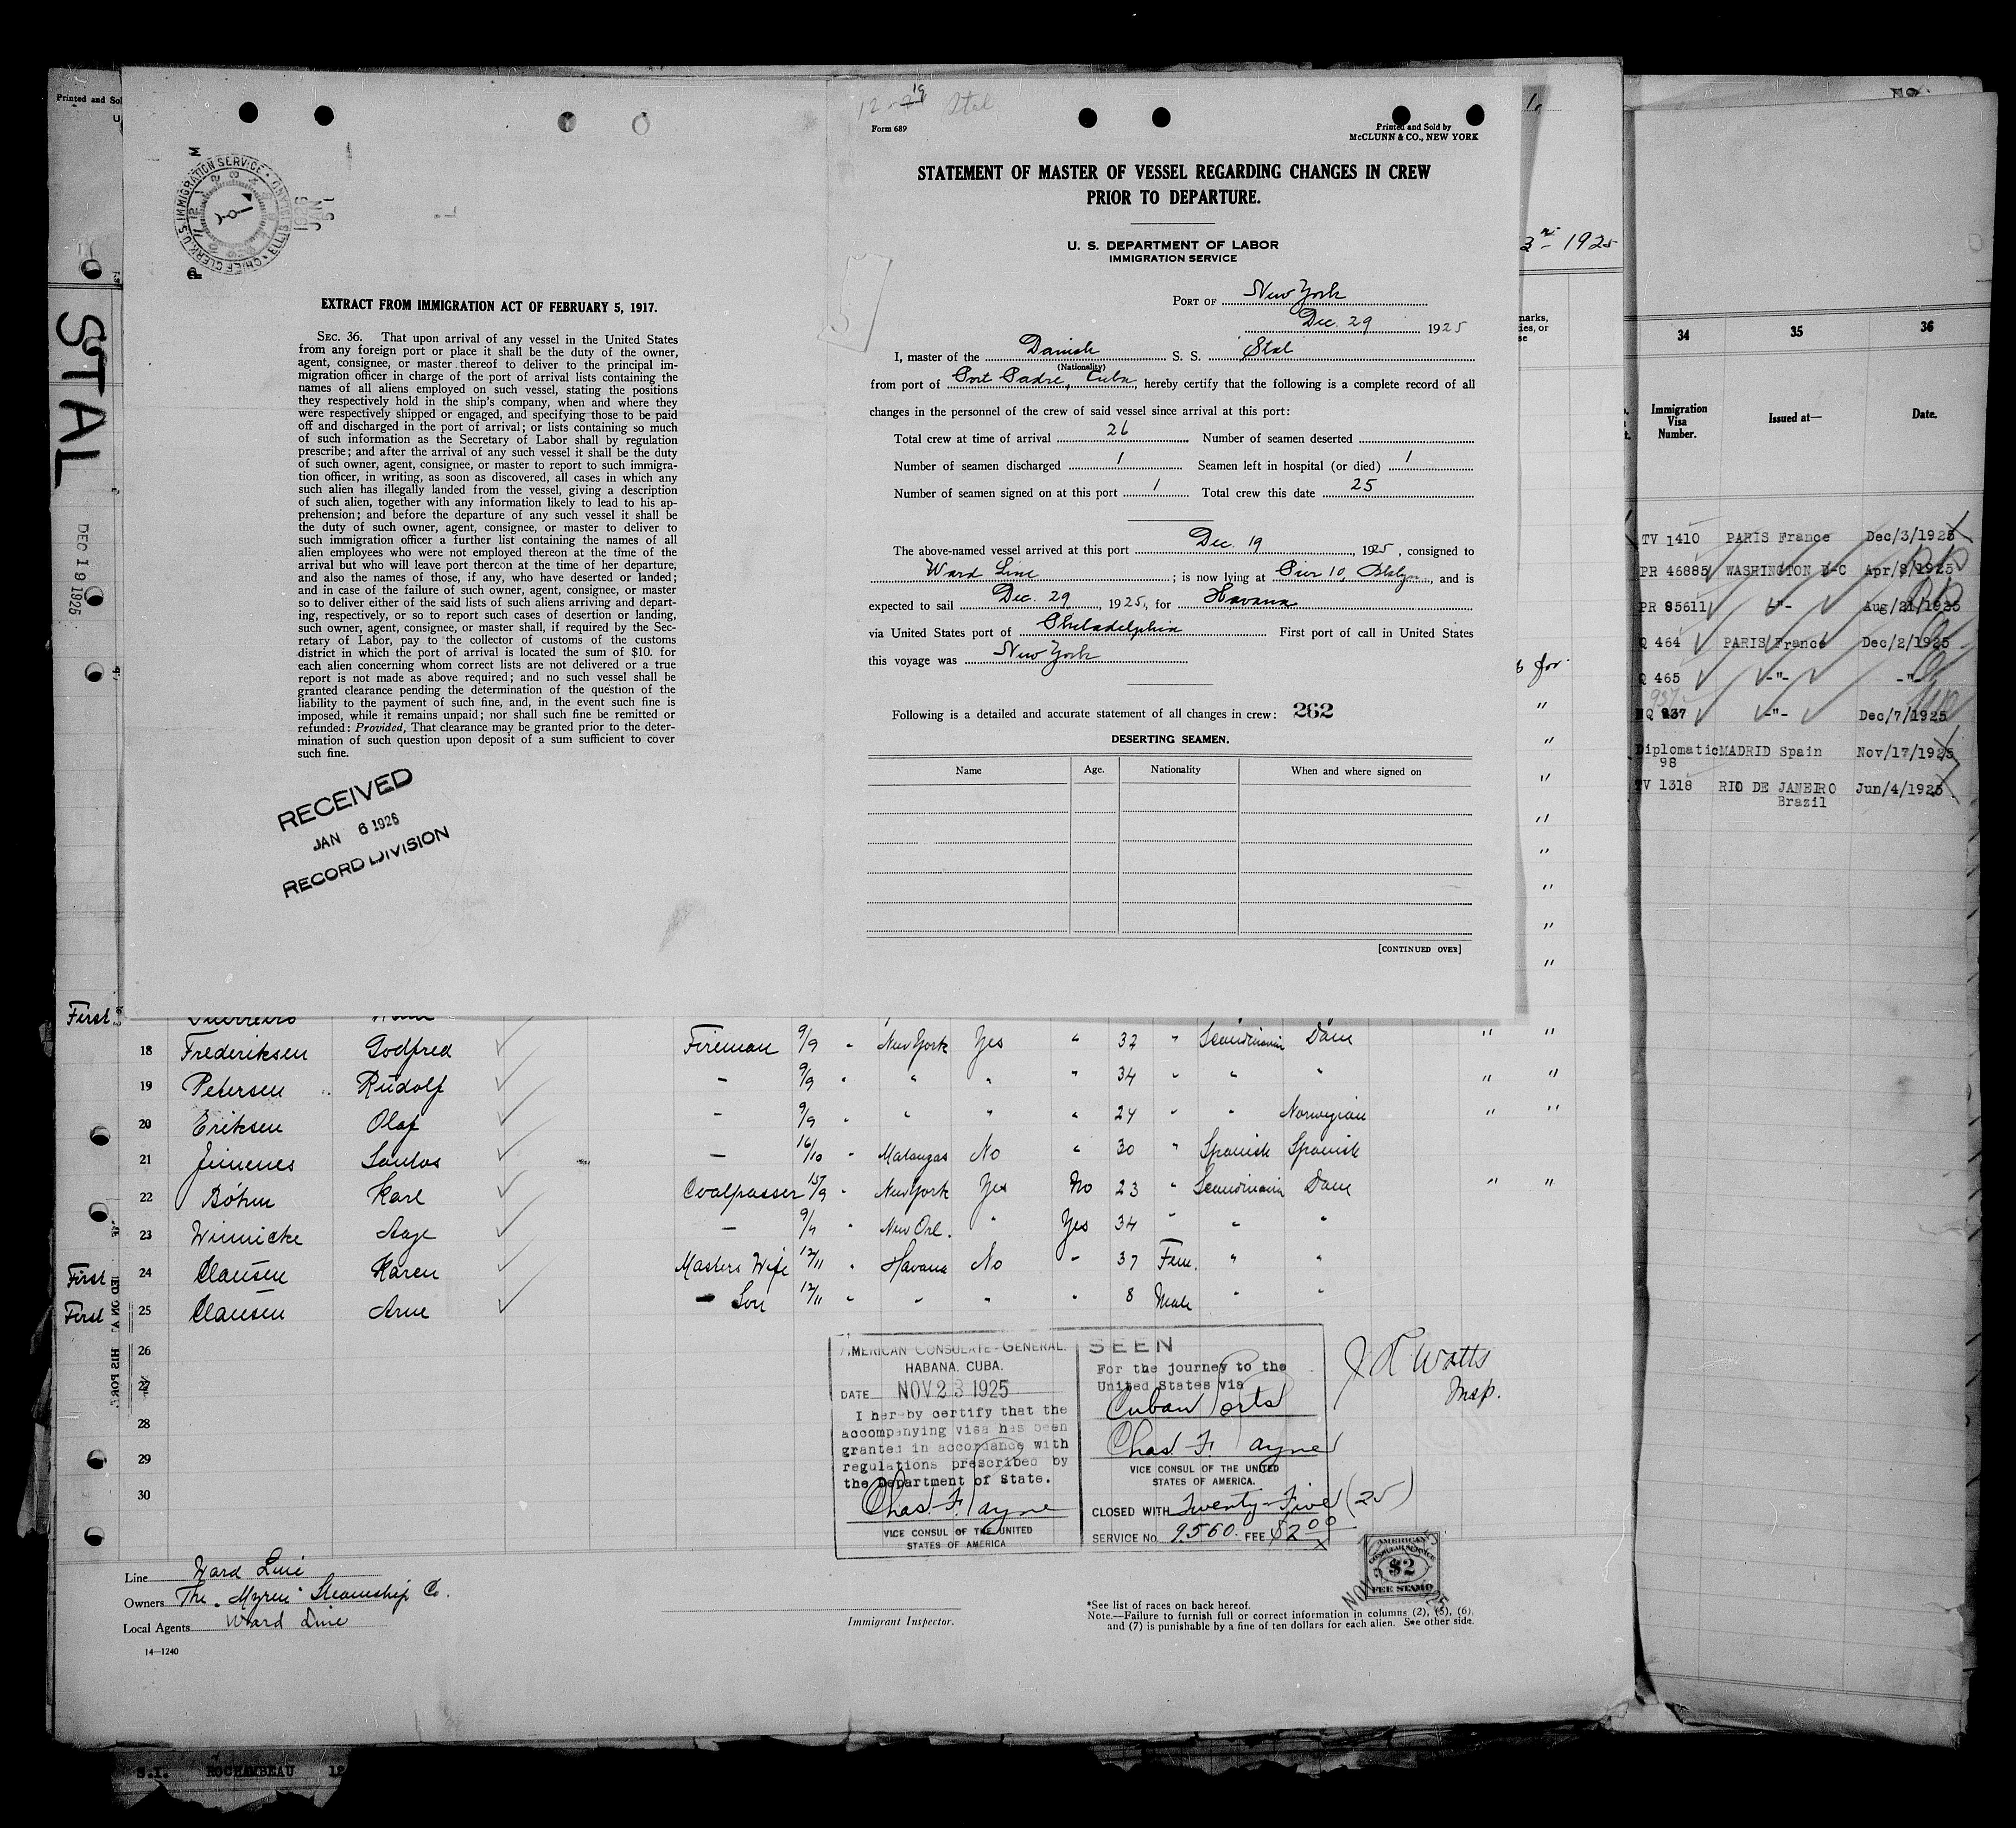 Printed and Sol
U
STAL
DEC 19 1925
CHIEF CLERK, U.S. IMMIGRATION SERVICE • ELLIS ISLAND •
1926
JAN
5
EXTRACT FROM IMMIGRATION ACT OF FEBRUARY 5, 1917.
SEC. 36. That upon arrival of any vessel in the United States
from any foreign port or place it shall be the duty of the owner,
agent, consignee, or master thereof to deliver to the principal im-
migration officer in charge of the port of arrival lists containing the
names of all aliens employed on such vessel, stating the positions
they respectively hold in the ship's company, when and where they
were respectively shipped or engaged, and specifying those to be paid
off and discharged in the port of arrival; or lists containing so much
of such information as the Secretary of Labor shall by regulation
prescribe; and after the arrival of any such vessel it shall be the duty
of such owner, agent, consignee, or master to report to such immigra-
tion officer, in writing, as soon as discovered, all cases in which any
such alien has illegally landed from the vessel, giving a description
of such alien, together with any information likely to lead to his ap-
prehension; and before the departure of any such vessel it shall be
the duty of such owner, agent, consignee, or master to deliver to
such immigration officer a further list containing the names of all
alien employees who were not employed thereon at the time of the
arrival but who will leave port thereon at the time of her departure,
and also the names of those, if any, who have deserted or landed;
and in case of the failure of such owner, agent, consignee, or master
so to deliver either of the said lists of such aliens arriving and depart-
ing, respectively, or so to report such cases of desertion or landing,
such owner, agent, consignee, or master shall, if required by the Sec-
retary of Labor, pay to the collector of customs of the customs
district in which the port of arrival is located the sum of $10. for
each alien concerning whom correct lists are not delivered or a true
report is not made as above required; and no such vessel shall be
granted clearance pending the determination of the question of the
liability to the payment of such fine, and, in the event such fine is
imposed, while it remains unpaid; nor shall such fine be remitted or
refunded: Provided, That clearance may be granted prior to the deter-
mination of such question upon deposit of a sum sufficient to cover
such fine.
RECEIVED
JAN 6 1926
RECORD DIVISION
12-19 Stal
Form 689
Printed and Sold by
McCLUNN & CO., NEW YORK
STATEMENT OF MASTER OF VESSEL REGARDING CHANGES IN CREW
PRIOR TO DEPARTURE.
U. S. DEPARTMENT OF LABOR
IMMIGRATION SERVICE
PORT OF New York
Dec. 29 1925
I, master of the Danish S. S. Stal
(Nationality)
from port of Port Padre, Cuba, hereby certify that the following is a complete record of all
changes in the personnel of the crew of said vessel since arrival at this port:
Total crew at time of arrival 26 Number of seamen deserted
Number of seamen discharged 1 Seamen left in hospital (or died) 1
Number of seamen signed on at this port 1 Total crew this date 25
The above-named vessel arrived at this port Dec. 19, 1925, consigned to
Ward Line; is now lying at Pier 10, Bklyn., and is
expected to sail Dec. 29, 1925, for Havana
via United States port of Philadelphia First port of call in United States
this voyage was New York
Following is a detailed and accurate statement of all changes in crew: 262
DESERTING SEAMEN.
Name Age. Nationality When and where signed on
[CONTINUED OVER]
1925
marks,
ies, or
se
for
34 35 36
Immigration Visa Number. Issued at— Date.
TV 1410 PARIS France Dec/3/1925
PR 46885 WASHINGTON D-C Apr/8/1925
PR 85611 -"- Aug/21/1925
Q 464 PARIS France Dec/2/1925
Q 465 -"- -"-
NQ 937 -"- Dec/7/1925
Diplomatic MADRID Spain Nov/17/1925
98
TV 1318 RIO DE JANEIRO Jun/4/1925
Brazil
First
18 Frederiksen Godfred Fireman 9/9 " New York Yes " 32 " Scandinavian Dane " "
19 Petersen Rudolf - 9/9 " " " " 34 " " " " "
20 Eriksen Olaf - 9/9 " " " " 24 " " Norwegian " "
21 Jimenes Santos - 16/10 " Matanzas No " 30 " Spanish Spanish
22 Böhm Karl Coalpasser 15/9 " New York Yes No 23 " Scandinavian Dane " "
23 Winnicke Aage - 9/7 " New Orl. " Yes 34 " " "
First 24 Clausen Karen Masters Wife 12/11 " Havana No " 37 Fem. " "
First 25 Clausen Arne - Son 12/11 " " " " 8 Male " "
26
27
28
29
30
AMERICAN CONSULATE-GENERAL.
HABANA, CUBA.
DATE NOV 23 1925
I hereby certify that the
accompanying visa has been
granted in accordance with
regulations prescribed by
the Department of State.
Chas. F. Payne
VICE CONSUL OF THE UNITED
STATES OF AMERICA
SEEN
For the journey to the
United States via
Cuban Ports
Chas. F. Payne
VICE CONSUL OF THE UNITED
STATES OF AMERICA.
CLOSED WITH Twenty-Five (25)
SERVICE No. 9560. FEE $2.00
Watts
Insp.
AMERICAN
CONSULAR SERVICE
$2
FEE STAMP
Line Ward Line
Owners The "Myren" Steamship Co.
Local Agents Ward Line
14—1240
Immigrant Inspector.
*See list of races on back hereof.
Note.—Failure to furnish full or correct information in columns (2), (5), (6),
and (7) is punishable by a fine of ten dollars for each alien. See other side.
S.I. ROCHAMBEAU 12